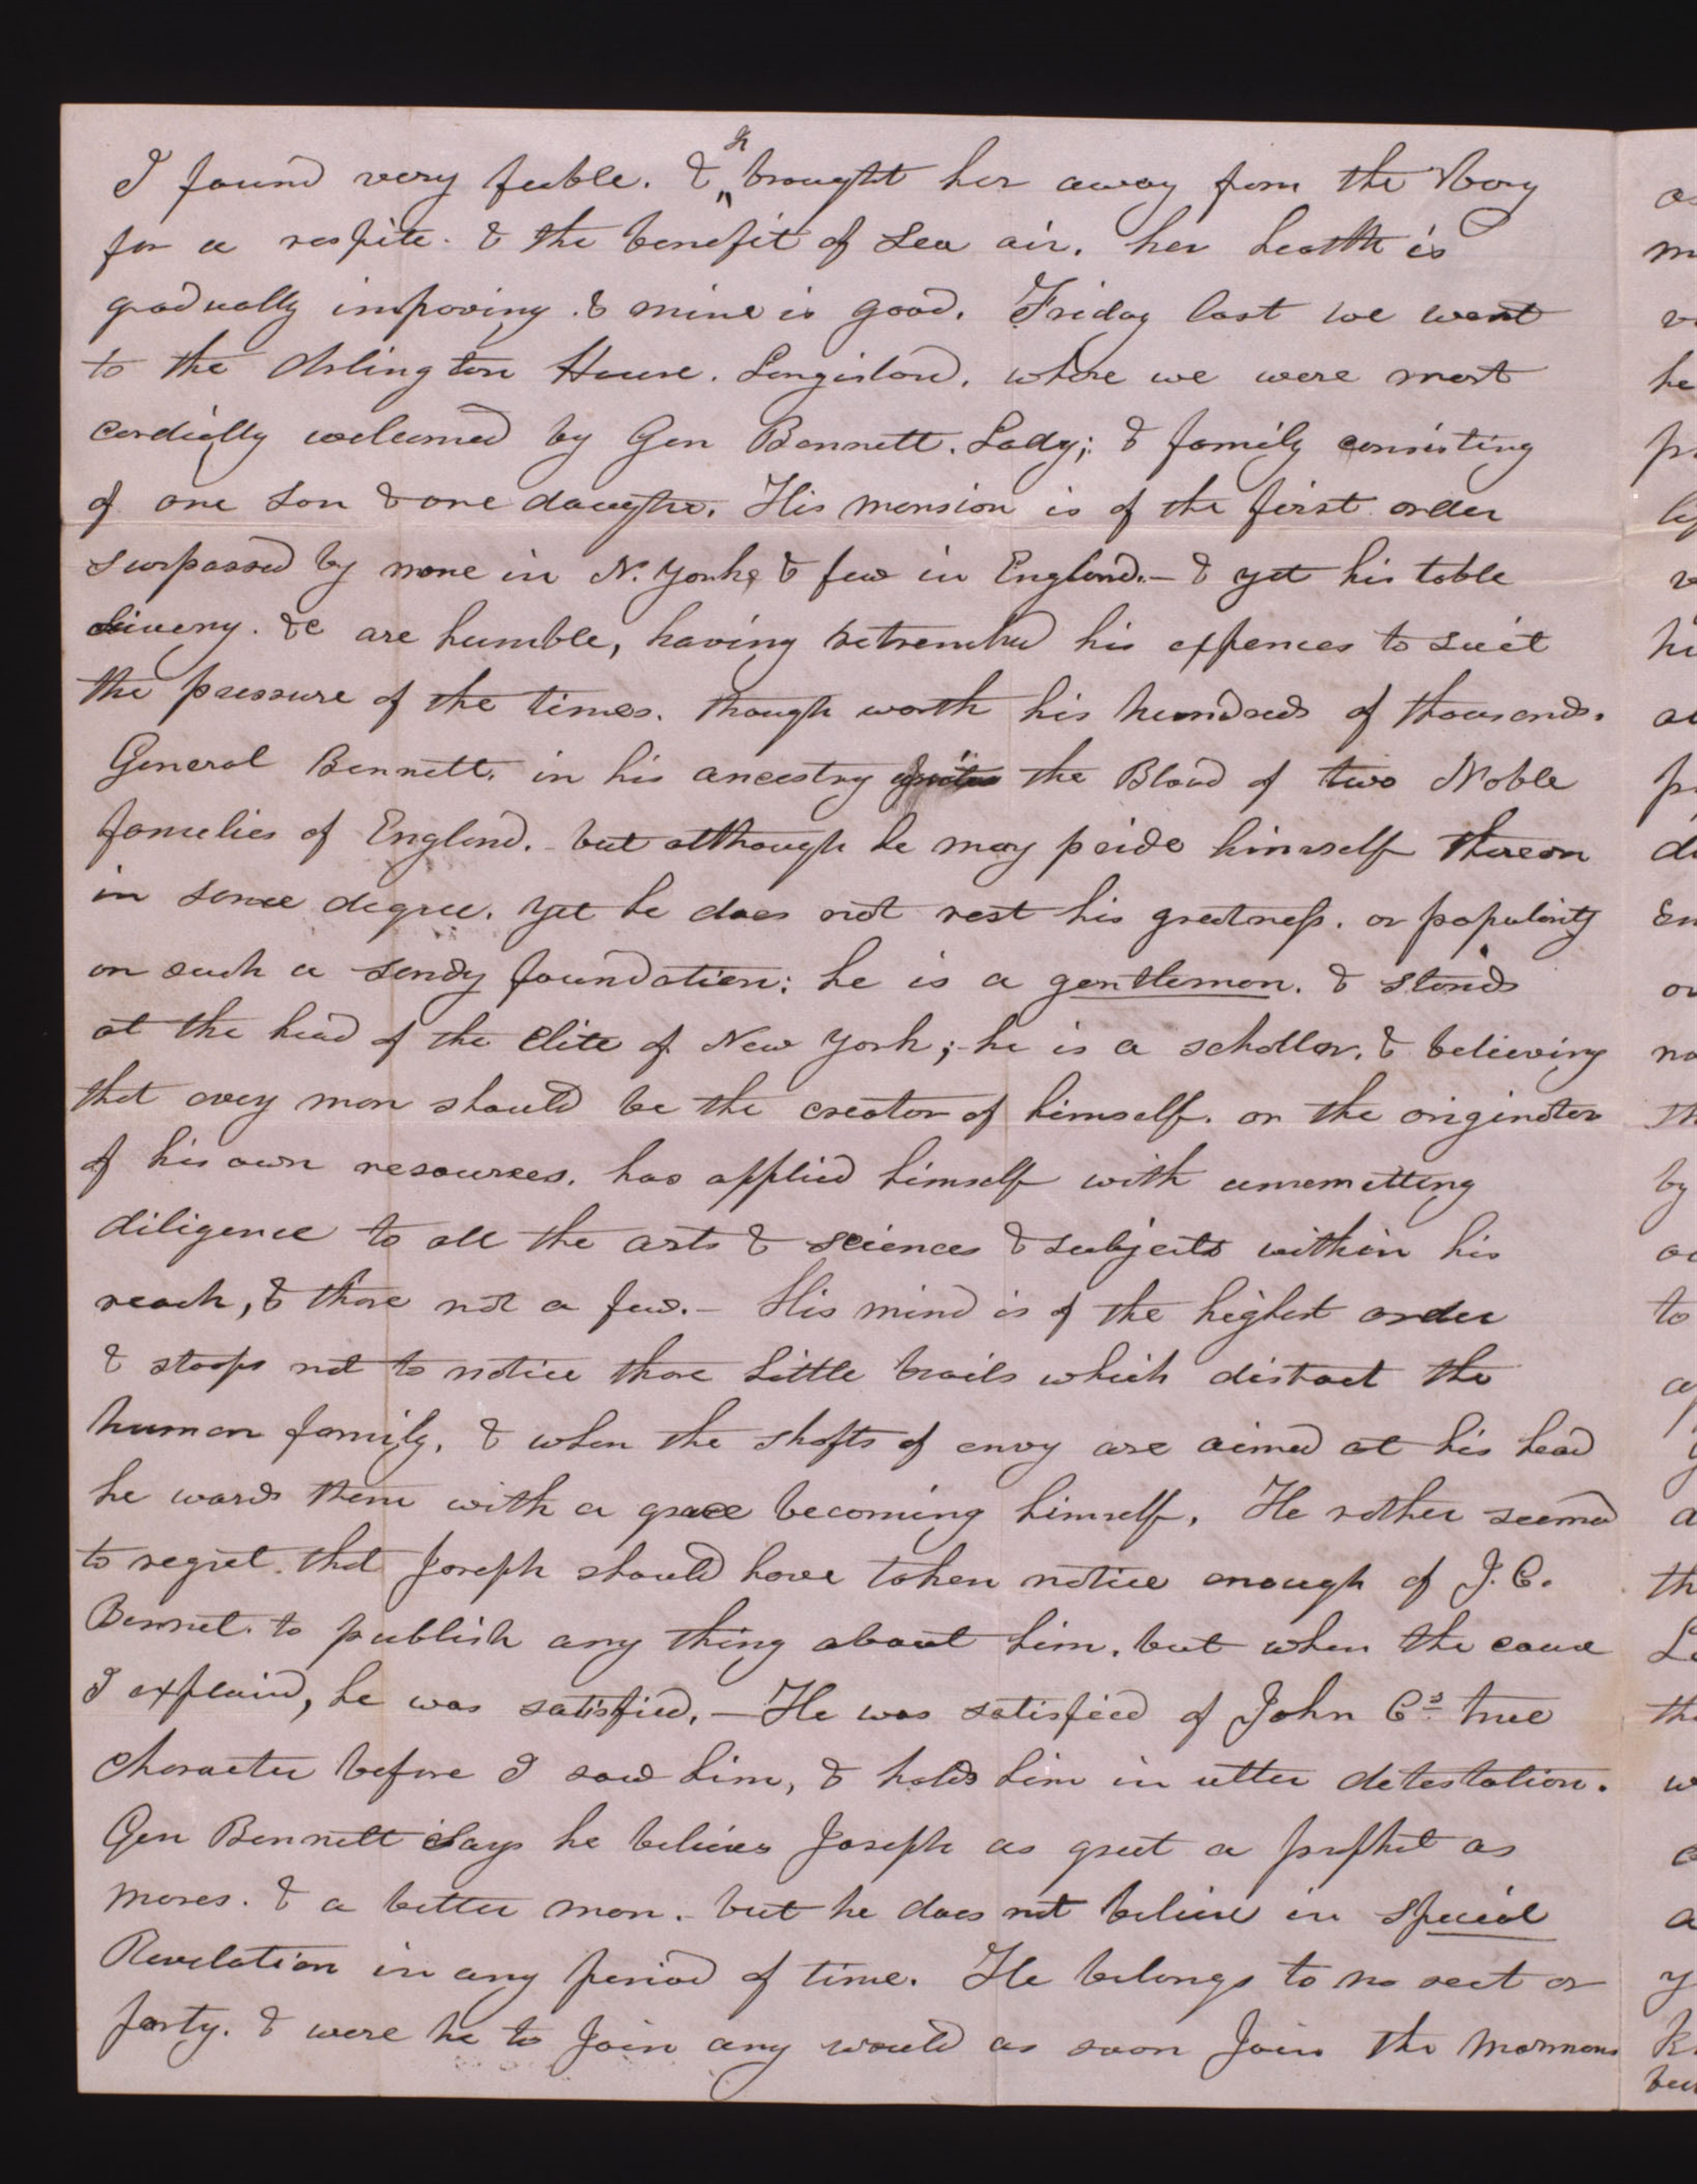 I found very feeble. & I brought her away from the Bay
for a respite. & the benefit of Sea air. her health is
gradually improving. & mine is good. Friday last we went
to the Arlington House. Longisland. where we were most
cordially welcomed by Gen Bennett. Lady; & family consisting
of one Son & one daughter. His mansion is of the first order
surpassed by none in N. York, & few in England.– & yet his table
livery. &c are humble, having retrenched his expences to suit
the pressure of the times. though worth his hundreds of thousands.
General Bennett. in his ancestry unites the Blood of two Noble
families of England. but although he may pride himself thereon
in some degree. yet he does not rest his greatness. or popularity
on such a sandy foundation: he is a gentleman. & stands
at the head of the elite of New York; he is a schollar. & believing
that every man should be the creator of himself. or the originator
of his own resources. has applied himself with unremitting
diligence to all the arts & sciences & subjects within his
reach, & those not a few.– His mind is of the highest order
& stoops not to notice those little broils which distract the
human family. & when the shafts of envy are aimed at his head
he wards them with a grace becoming himself. He rather seemed
to regret that Joseph should have taken notice enough of J. C.
Bennet. to publish any thing about him. but when the cause
I explaind, he was satisfied.– He was satisfied of John C's true
character before I saw him, & holds him in utter detestation.
Gen Bennett Says he believes Joseph as great a prophet as
moses. & a better man. but he does not believe in special
Revelation in any period of time. He belongs to no sect or
party. & were he to Join any would as soon Join the Mormons